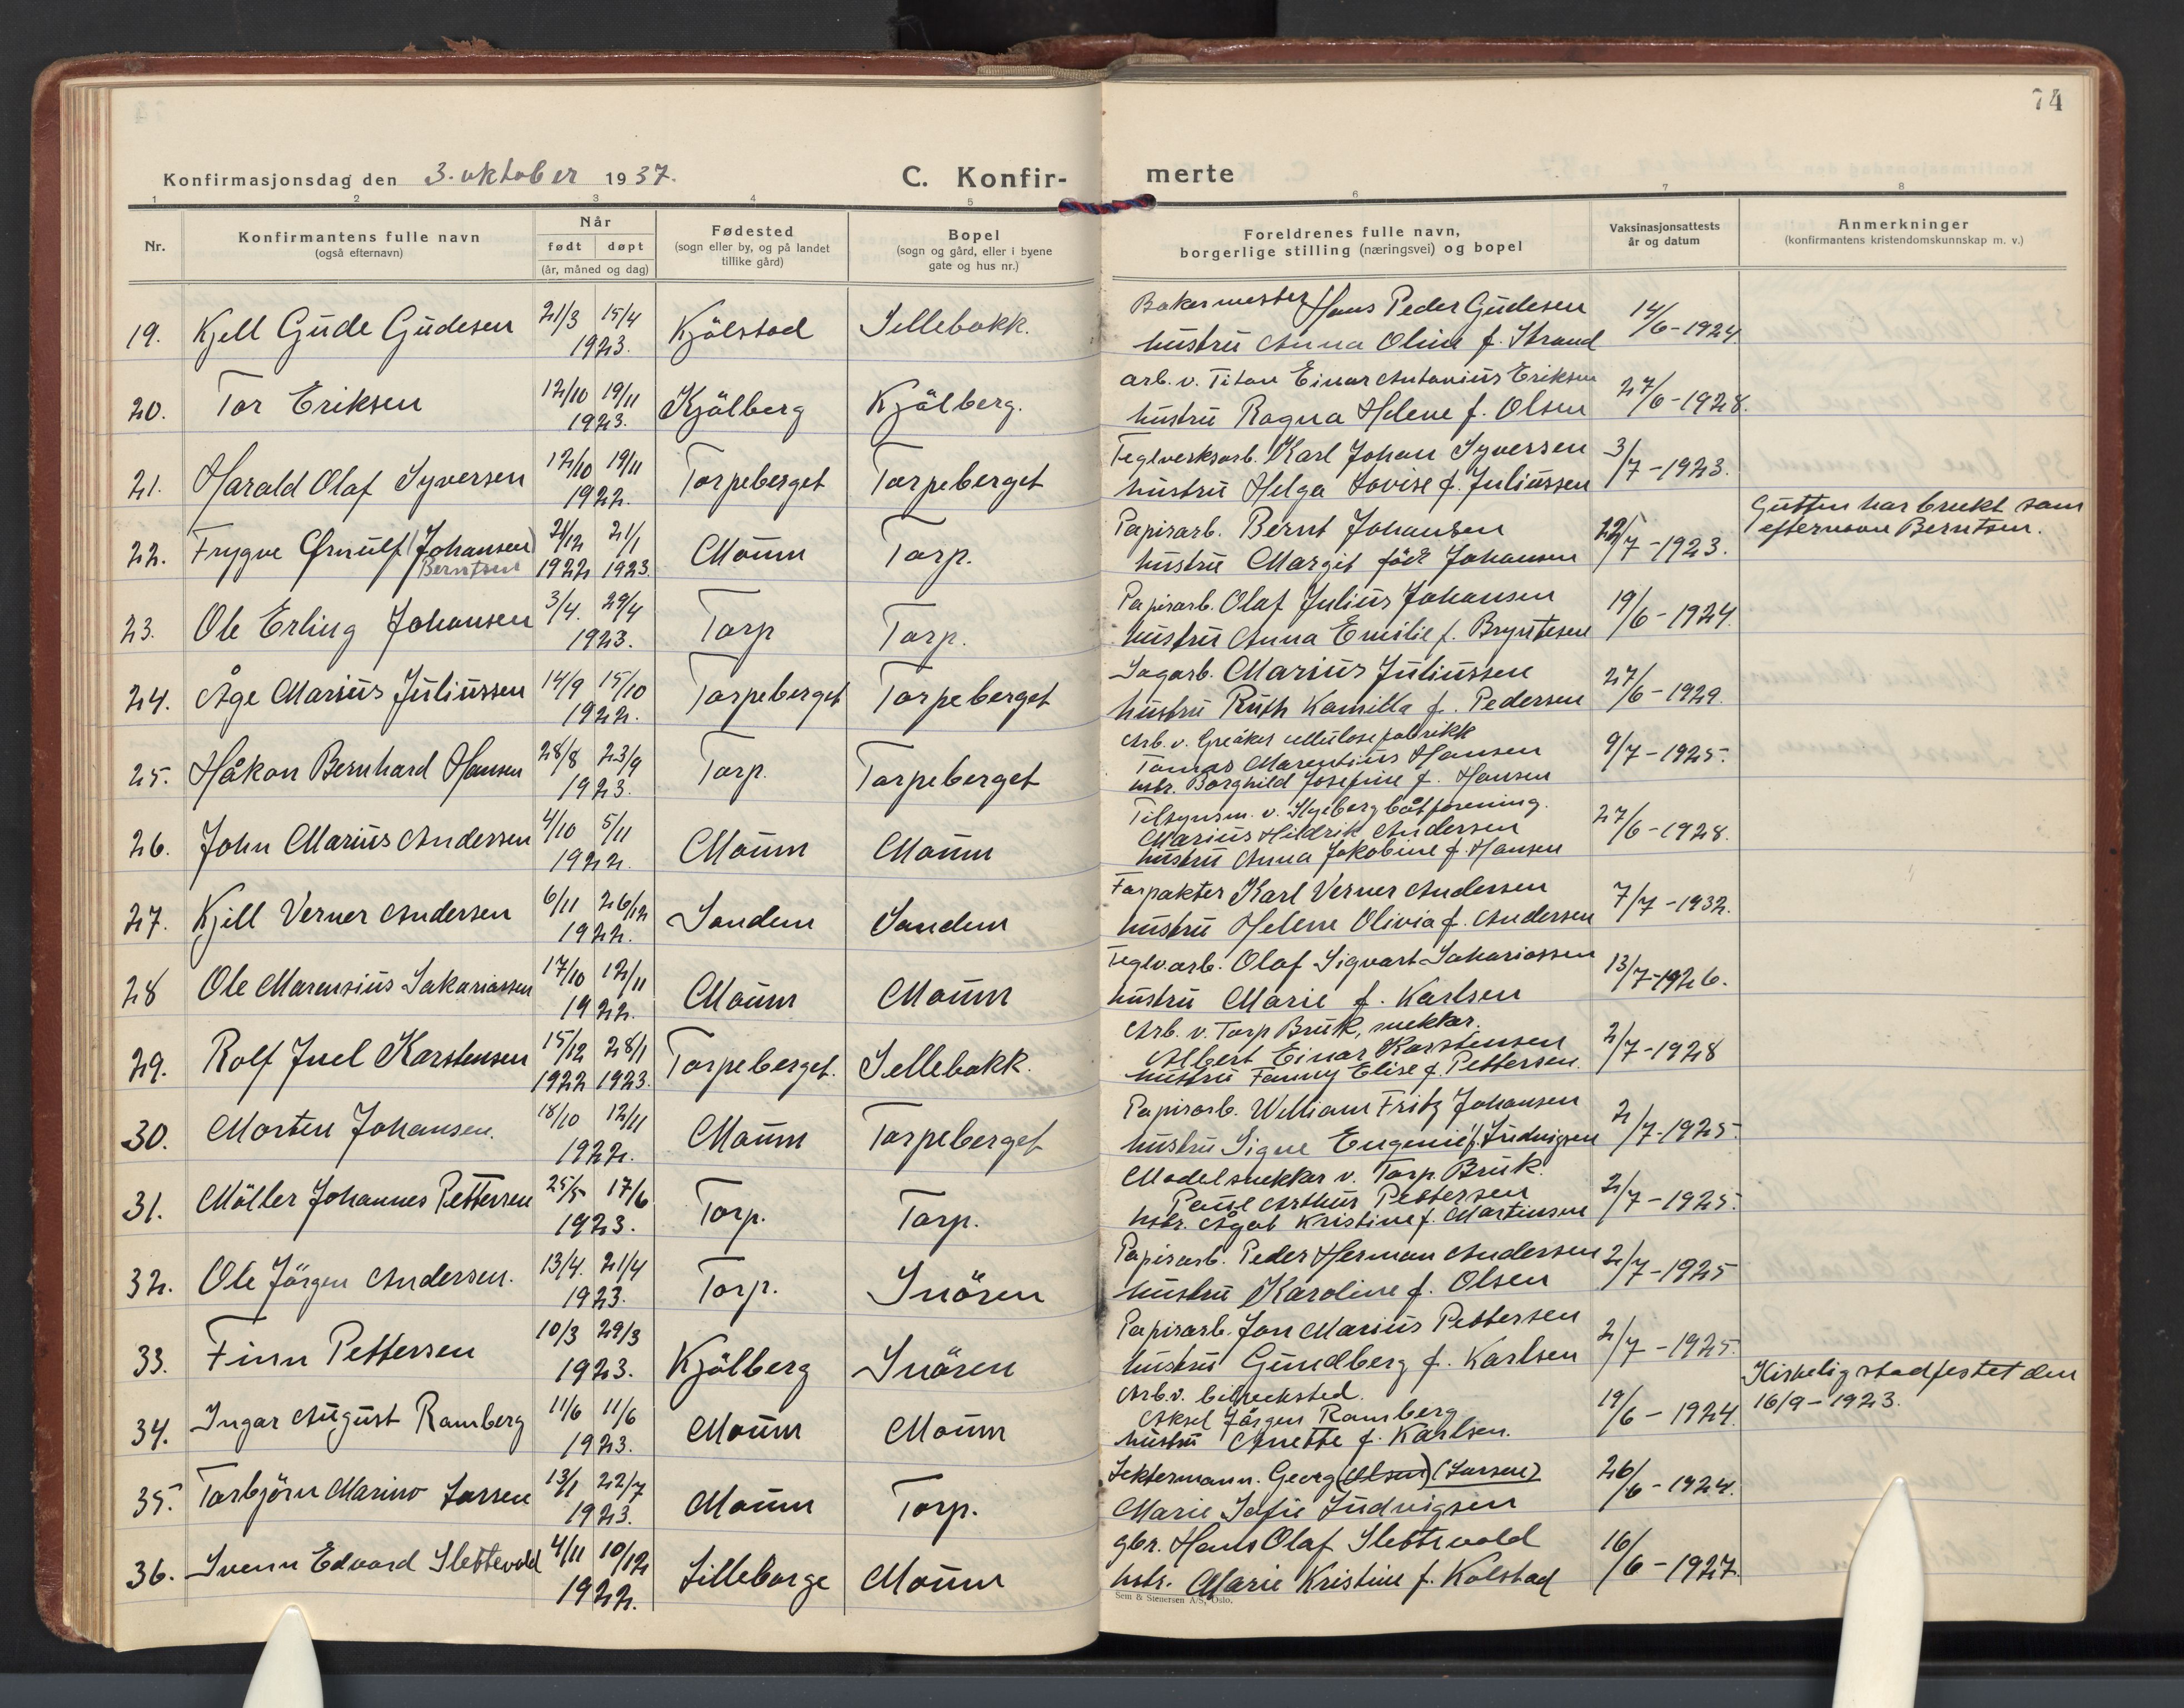 74
Konfirmasjonsdag den 3. oktober 1937. C. Konfir- merte
1 2 3 4 5 6 7 8
Nr. Konfirmantens fulle navn (også efternavn) Når født døpt (år, måned og dag) Fødested (sogn eller by, og på landet tillike gård) Bopel (sogn og gård, eller i byene gate og hus nr.) Foreldrenes fulle navn, borgerlige stilling (næringsvei) og bopel Vaksinasjonsattests år og datum Anmerkninger (konfirmantens kristendomskunnskap m. v.)
19. Kjell Gude Gudesen 21/3 15/4 1923. Kjölstad Sellebakk. Bakermester Hans Peder Gudesen
hustru Anna Oline f. Strand 14/6-1924
20. Tor Eriksen 12/10 19/11 1923. Kjölberg Kjölberg. arb. v. Titan Einar Antonius Eriksen
hustru Ragna Helene f. Olsen 27/6-1928.
21. Harald Olaf Syversen 12/10 19/11 1922. Torpeberget Torpeberget Teglverksarb. Karl Johan Syversen
hustru Helga Lovise f. Juliussen 3/7-1923.
22. Trygve Ørnulf (Johansen) Berntsen 21/12 1922 21/1 1923. Moum Torp. Papirarb. Bernt Johansen
hustru Margit född Johansen 22/7-1923. Gutten har brukt som
efternavn Berntsen.
23. Ole Erling Johansen 3/4. 29/4 1923. Torp Torp. Papirarb. Olaf Julius Johansen
hustru Anna Emilie f. Bryntesen 19/6-1924.
24. Åge Marius Juliussen 14/9 15/10 1922. Torpeberget Torpeberget Sagarb. Marius Juliussen
hustru Ruth Kamilla f. Pedersen 27/6-1929.
25. Håkon Bernhard Hansen 28/8 23/9 1923. Torp. Torpeberget Arb. v. Greåker cellulosefabrikk
Tomas Marentius Hansen
hstr. Borghild Josefine f. Hansen 9/7-1925.
26. John Marius Andersen 4/10 5/11 1922. Moum Moum Tilsynsm. v. båtforening.
Marius Hildrik Andersen
hustru Anna Jakobine f. Hansen 27/6-1928.
27. Kjell Verner Andersen 6/11 26/12 1922. Sandem Sandem Forpakter Karl Verner Andersen
hustru Helene Olivia f. Andersen 7/7-1932.
28 Ole Marensius Sakariassen 17/10 12/11 1922. Moum Moum Teglv.arb. Olaf Sigvart Sakariassen
hustru Marie f. Karlsen 13/7-1926.
29. Rolf Juel Karstensen 15/12 1922 28/1 1923. Torpeberget. Sellebakk. Arb. v. Torp Bruk, snekker.
Albert Einar Karstensen
hustru Fanny Elise f. Pettersen. 2/7-1928
30. Morten Johansen. 18/10 12/11 1922. Moum Torpeberget Papirarb. William Fritz Johansen
hustru Signe Eugenie f. Ludvigsen 2/7-1925.
31. Möller Johannes Pettersen 25/5 17/6 1923. Torp. Torp. Modelsnekker v. Torp Bruk.
Paul Arthur Pettersen
hstr. Ågot Kristine f. Martinsen 2/7-1925.
32. Ole Jörgen Andersen. 13/4. 21/4 1923. Torp. Snören Papirarb. Peder Herman Andersen
hustru Karoline f. Olsen 2/7-1925
33. Finn Pettersen 10/3 29/3 1923. Kjölberg Snören Papirarb. Jon Marius Pettersen
hustru Gundberg f. Karlsen 2/7-1925.
34. Ingar August Ramberg 11/6 11/6 1923. Moum Moum Arb. v.
Aksel Jörgen Ramberg
hustru Anette f. Karlsen. 19/6-1924. Kirkelig stadfestet den
16/9-1923.
35. Torbjörn Marino Larsen 13/1 22/7 1923. Moum Torp. Lektermann. Georg (Olsen) (Larsen)
Marie Sofie Ludvigsen 26/6-1924.
36. Svenn Edvard Slettevold 4/11 10/12 1922. Lilleborge Moum gbr. Hans Olaf Slettevold
hstr. Marie Kristine f. Kolstad 16/6-1927.
Sem & Stenersen A/S, Oslo.